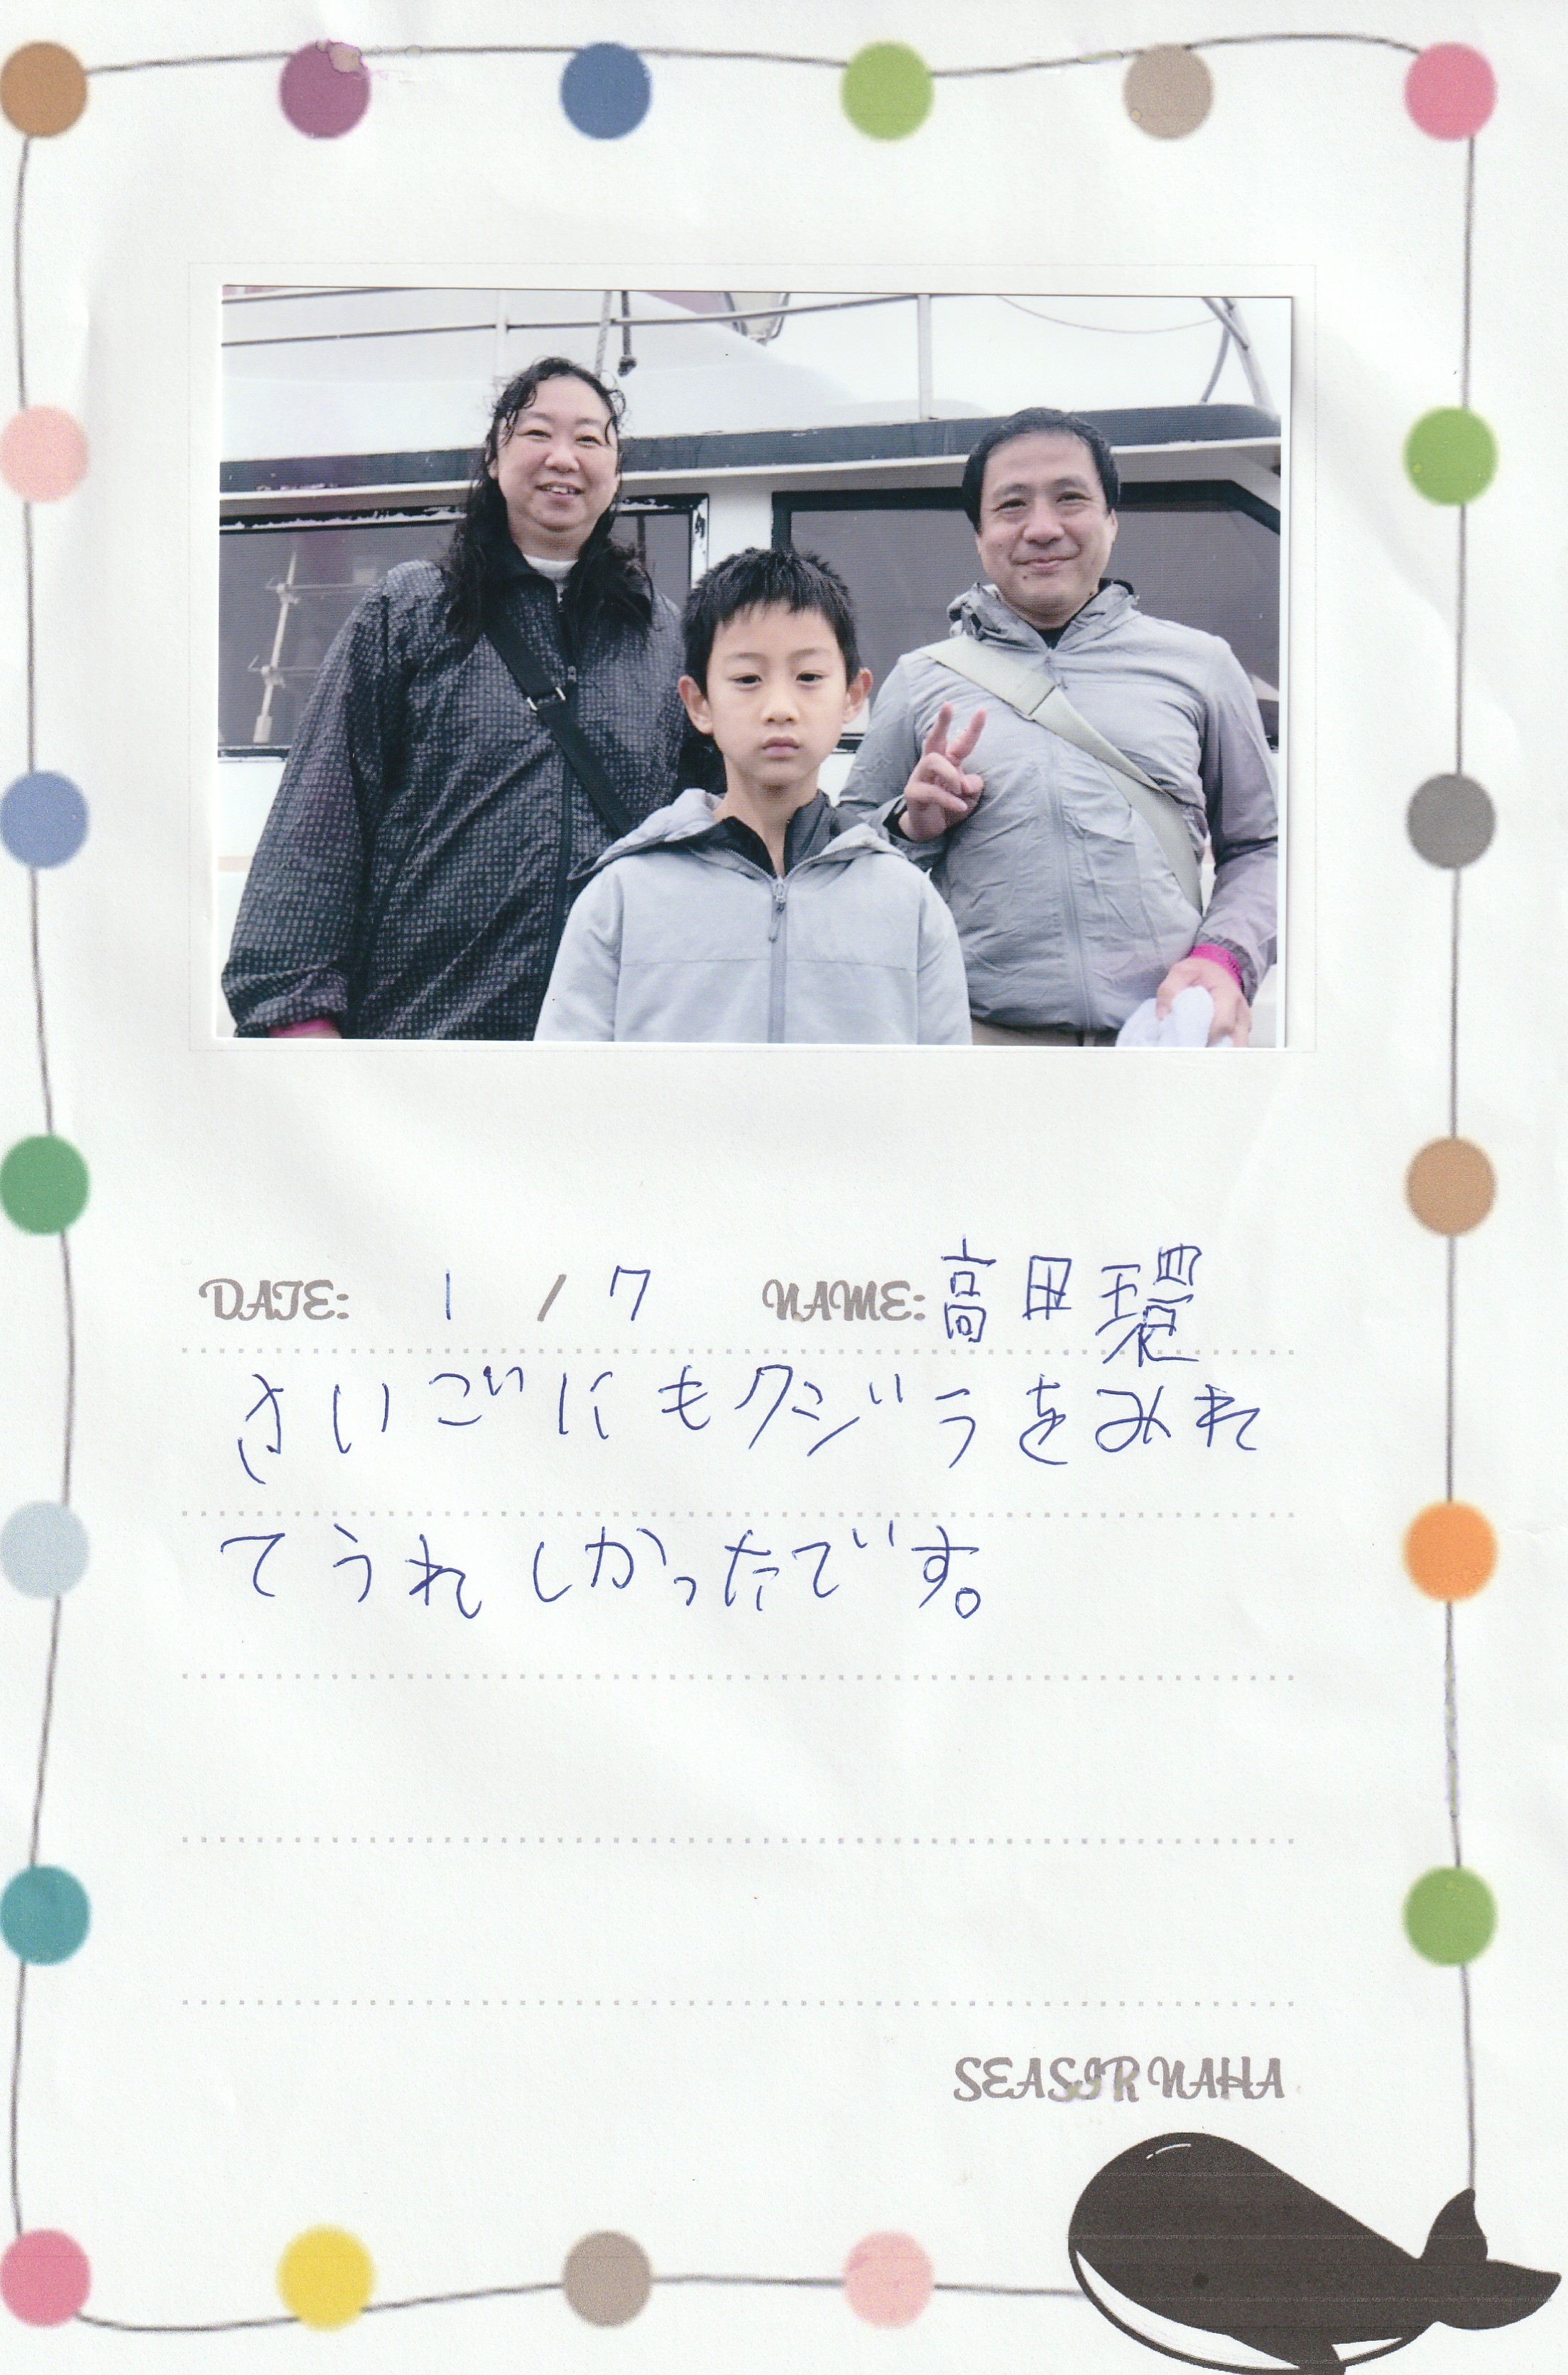 DATE: 1 / 7 NAME: 高田環
さいごにもクジラをみれ
てうれしかったです。
SEASIR NAHA